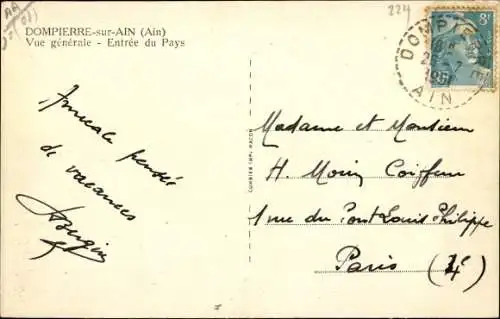 DOMPIERRE-sur-AIN (Ain)
Vue générale - Entrée du Pays
224
8F
DOMPIERRE
AIN
Amicale pensée
de vacances
Madame et Monsieur
H. Moin Coiffeur
1 rue du Pont Louis Philippe
Paris (4e)